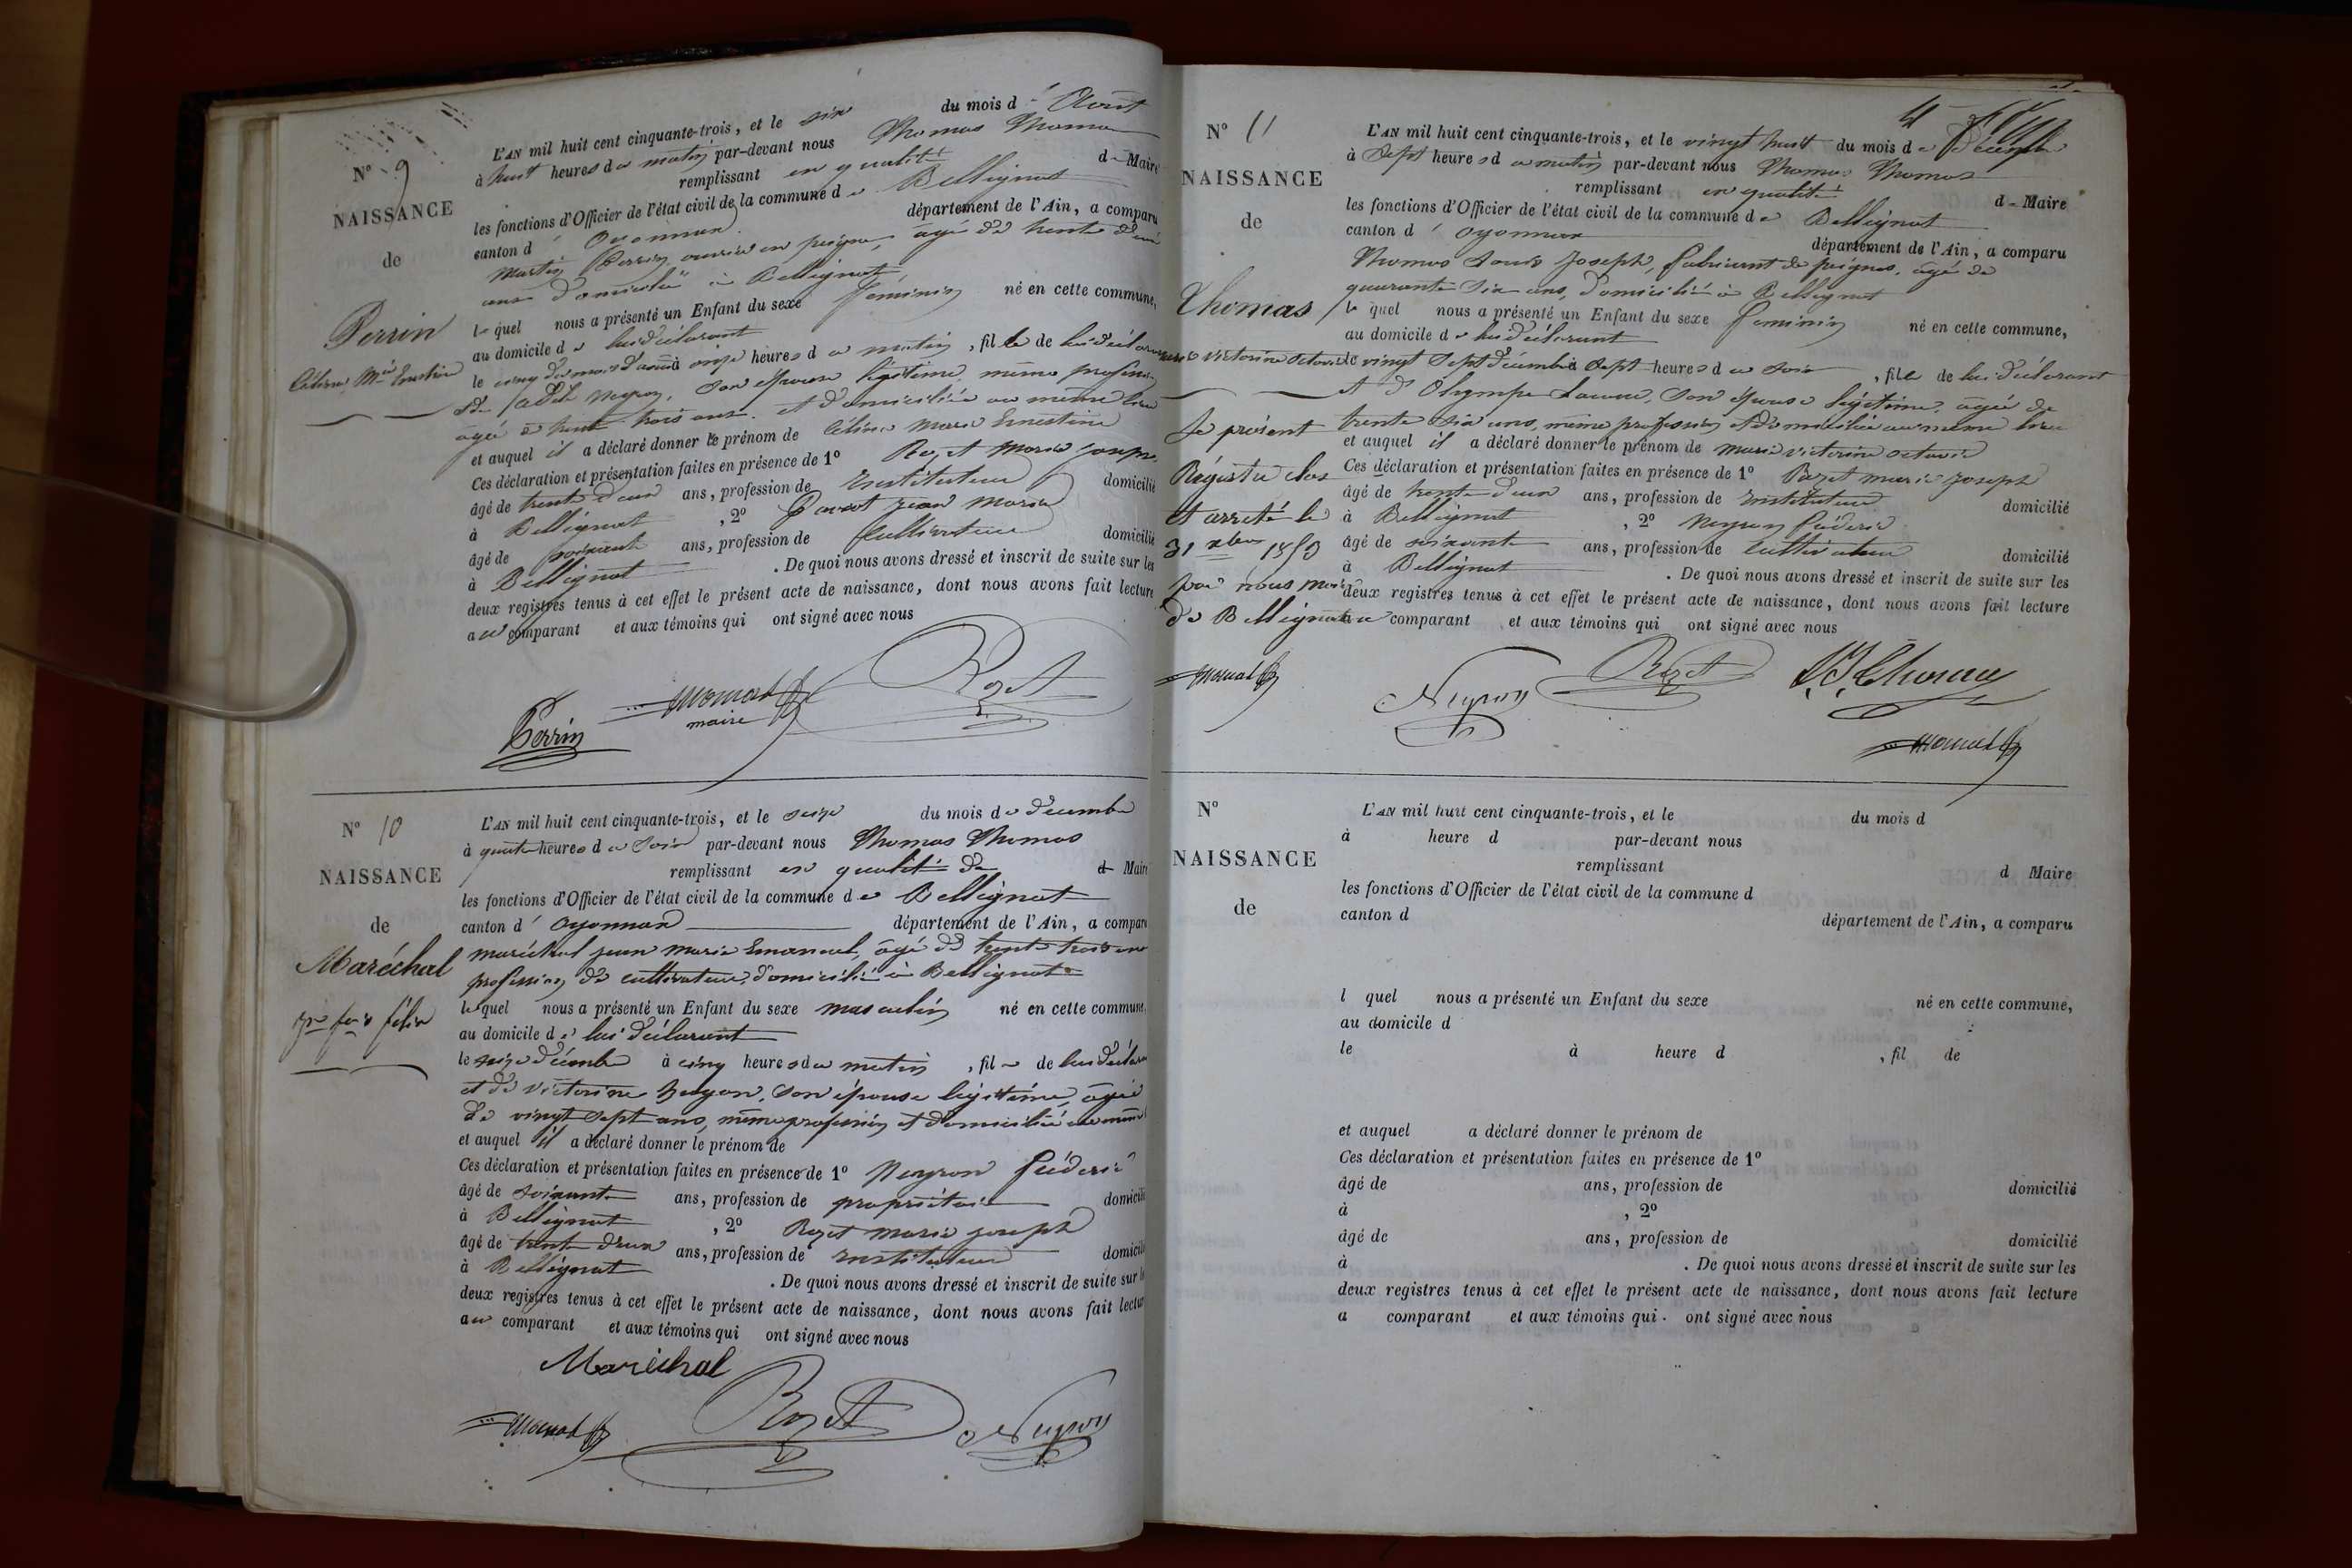 N° 9
NAISSANCE
de
Perrin
Célina Mie Ernestine
L'AN mil huit cent cinquante-trois, et le six du mois d'Août
à huit heures du matin par-devant nous Thomas Thomas
remplissant en qualité de Maire
les fonctions d'Officier de l'état civil de la commune de Bellignat
canton d'Oyonnax département de l'Ain, a comparu
Martin Perrin ouvrier en peigne, âgé de trente deux
ans domicilié à Bellignat,
lequel nous a présenté un Enfant du sexe féminin né en cette commune,
au domicile de lui déclarant
le cinq du mois d'août à onze heures du matin, fille de lui déclarant
et de Neyron, son épouse légitime, même profession
âgée de trente trois ans et domiciliée au même lieu
et auquel il a déclaré donner le prénom de Célina Marie Ernestine
Ces déclaration et présentation faites en présence de 1° Rozet Marie Joseph
âgé de trente deux ans, profession de Instituteur domicilié
à Bellignat, 2° Jean Marie
âgé de soixante ans, profession de Cultivateur domicilié
à Bellignat. De quoi nous avons dressé et inscrit de suite sur les
deux registres tenus à cet effet le présent acte de naissance, dont nous avons fait lecture
au comparant et aux témoins qui ont signé avec nous
Perrin Thomas maire Rozet
N° 10
NAISSANCE
de
Maréchal
Jn fçois félix
L'AN mil huit cent cinquante-trois, et le seize du mois de décembre
à quatre heures du soir par-devant nous Thomas Thomas
remplissant en qualité de d Maire
les fonctions d'Officier de l'état civil de la commune de Bellignat
canton d'Oyonnax département de l'Ain, a comparu
maréchal jean marie Emanuel, âgé de trente trois ans
profession de cultivateur, domicilié à Bellignat
lequel nous a présenté un Enfant du sexe masculin né en cette commune,
au domicile de lui déclarant
le seize décembre à cinq heures du matin, fil de lui déclarant
et de victorine, son épouse légitime, âgée
de vingt sept ans, même profession et domiciliée au même
et auquel il a déclaré donner le prénom de
Ces déclaration et présentation faites en présence de 1° Neyron fréderic
âgé de soixante ans, profession de propriétaire domicilié
à Bellignat, 2° Rozet Marie joseph
âgé de trente deux ans, profession de Instituteur domicilié
à Bellignat. De quoi nous avons dressé et inscrit de suite sur les
deux registres tenus à cet effet le présent acte de naissance, dont nous avons fait lecture
au comparant et aux témoins qui ont signé avec nous
Maréchal
Thomas Rozet Neyron
4
N° 11
NAISSANCE
de
Thomas
marie victorine octavie
Le présent
Régistre clos
et arreté le
31 xbre 1853
par nous maire
de Bellignat
Thomas
L'AN mil huit cent cinquante-trois, et le vingt huit du mois de Décembre
à sept heures du matin par-devant nous Thomas Thomas
remplissant en qualité de Maire
les fonctions d'Officier de l'état civil de la commune de Bellignat
canton d'oyonnax département de l'Ain, a comparu
Thomas Louis Joseph, fabricant de peignes, âgé de
quarante six ans, domicilié à Bellignat
lequel nous a présenté un Enfant du sexe féminin né en cette commune,
au domicile de lui déclarant
le vingt sept décembre à sept heures du soir, fille de lui déclarant
et d'Olympe, son épouse légitime, âgée de
trente six ans, même profession et domiciliée au même lieu
et auquel il a déclaré donner le prénom de marie victorine octavie
Ces déclaration et présentation faites en présence de 1° Rozet marie joseph
âgé de trente deux ans, profession de Instituteur domicilié
à Bellignat, 2° Neyron fréderic
âgé de soixante ans, profession de Cultivateur domicilié
à Bellignat. De quoi nous avons dressé et inscrit de suite sur les
deux registres tenus à cet effet le présent acte de naissance, dont nous avons fait lecture
au comparant et aux témoins qui ont signé avec nous
Neyron Rozet L.J. Thomas
Thomas
N°
NAISSANCE
de
L'AN mil huit cent cinquante-trois, et le du mois d
à heure d par-devant nous
remplissant d Maire
les fonctions d'Officier de l'état civil de la commune d
canton d département de l'Ain, a comparu
l quel nous a présenté un Enfant du sexe né en cette commune,
au domicile d
le à heure d , fil de
et auquel a déclaré donner le prénom de
Ces déclaration et présentation faites en présence de 1°
âgé de ans, profession de domicilié
à , 2°
âgé de ans, profession de domicilié
à . De quoi nous avons dressé et inscrit de suite sur les
deux registres tenus à cet effet le présent acte de naissance, dont nous avons fait lecture
a comparant et aux témoins qui ont signé avec nous